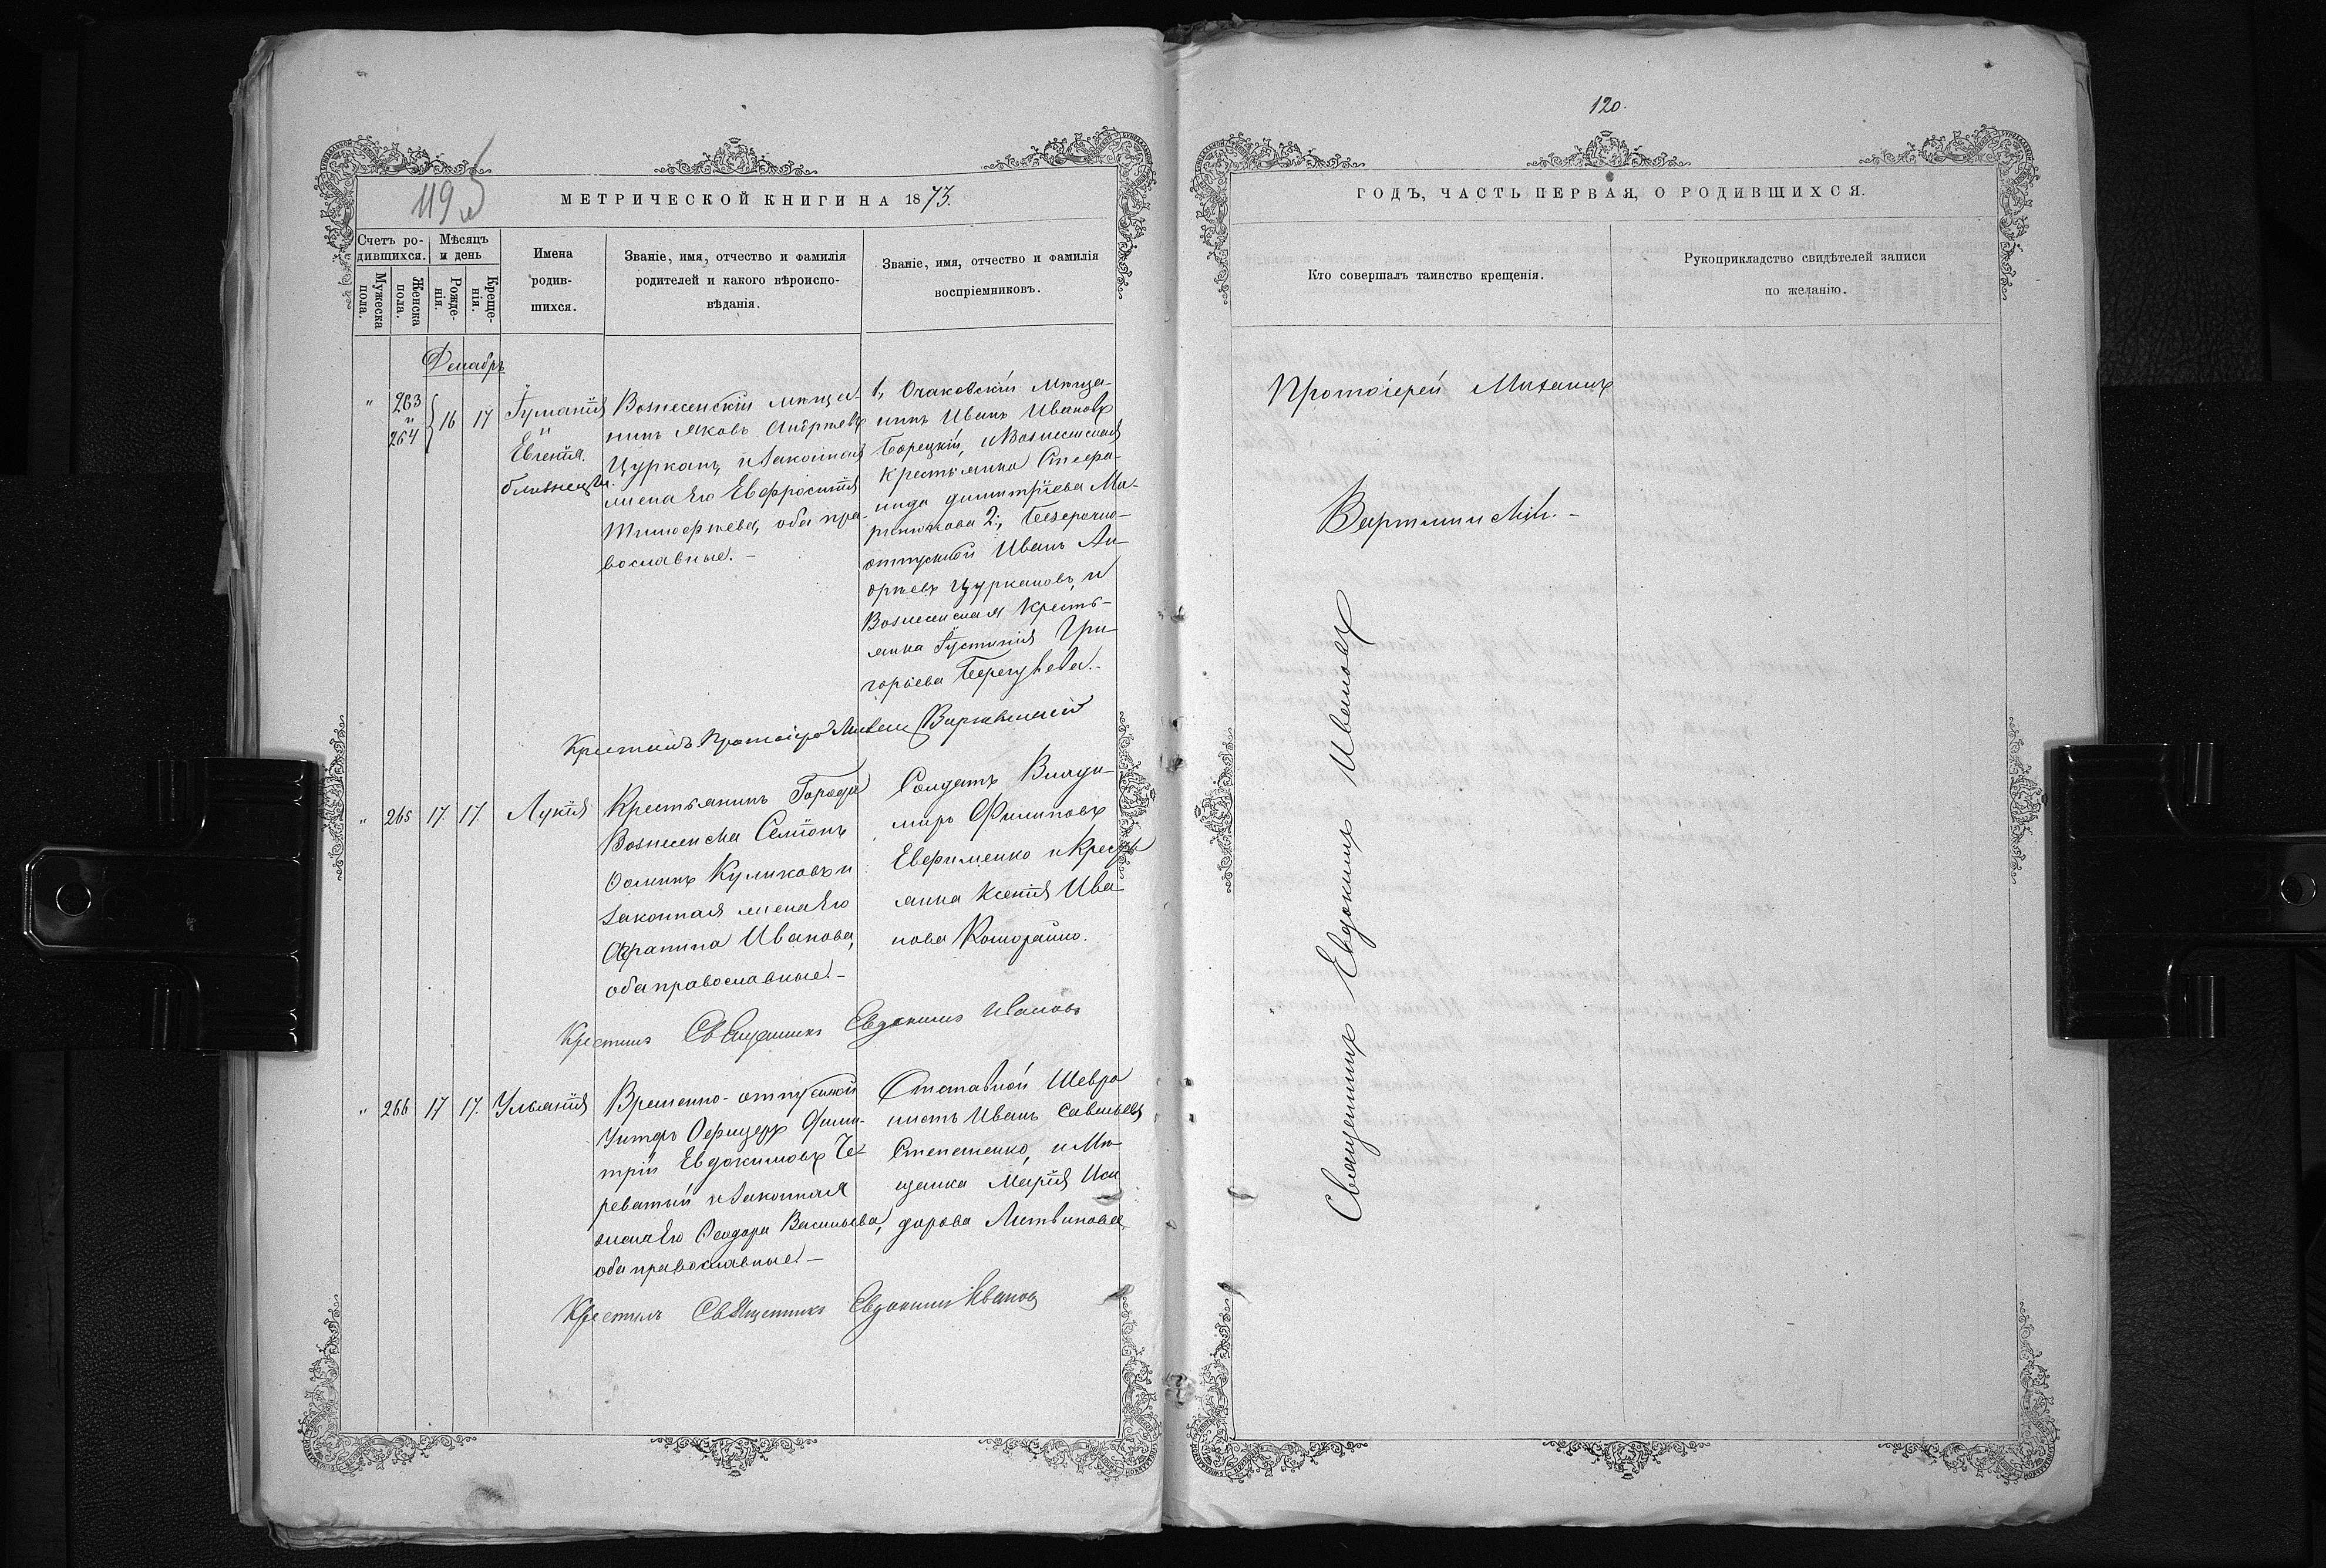 119
МЕТРИЧЕСКОЙ КНИГИ НА 1873.
Счетъ ро-
дившихся.
Мѣсяцъ
и день
Мужеска
пола.
Женска
пола.
Рожде-
нія.
Креще-
нія.
Имена
родив-
шихся.
Званіе, имя, отчество и фамилія
родителей и какого вѣроиспо-
вѣданія.
Званіе, имя, отчество и фамилія
воспріемниковъ.
Декабрь
" 263 и 264 16 17
Іуліанія
и
Евгенія.
близнецы.
Вознесенскій мѣща-
нинъ Яковъ
Цурканъ и законная
жена его Евфросинія
Тимофѣева, оба пра-
вославные. –
1, Очаковскій мѣща-
нинъ Иванъ Ивановъ
Борецкій, и Вознесенская
крестьянка Степа-
нида Димитріева Ма-
2; Безсрочно-
отпускной Иванъ Ан-
дреевъ Цуркановъ, и
Вознесенская кресть-
янка Іустинія Гри-
горьева
Крестилъ Протоіерей
" 265 17. 17.
Лукія
Крестьянинъ Города
Вознесенска Семіонъ
Ѳоминъ Куликовъ и
законная жена его
Ивановна,
оба православные. –
Солдатъ Влади-
миръ Филиповъ
Евфименко и кресть-
янка Ксенія Ива-
нова
Крестилъ Священникъ Евдокимъ Ивановъ
" 266 17 17.
Ульянія
Временно-отпускной
Унтеръ Офицеръ Дими-
трій Евдокимовъ Че-
реватый и законная
жена его Ѳеодора Васильева,
оба православные –
Отставной
Иванъ Савельевъ
Степаненко, и Мѣ-
щанка Марія Иси-
дорова Литвинова
Крестилъ Священникъ Евдокимъ Ивановъ
120.
ГОДЪ, ЧАСТЬ ПЕРВАЯ, О РОДИВШИХСЯ.
Кто совершалъ таинство крещенія.
Рукоприкладство свидѣтелей записи
по желанію.
Протоіерей Михаилъ
Священникъ Евдокимъ Ивановъ